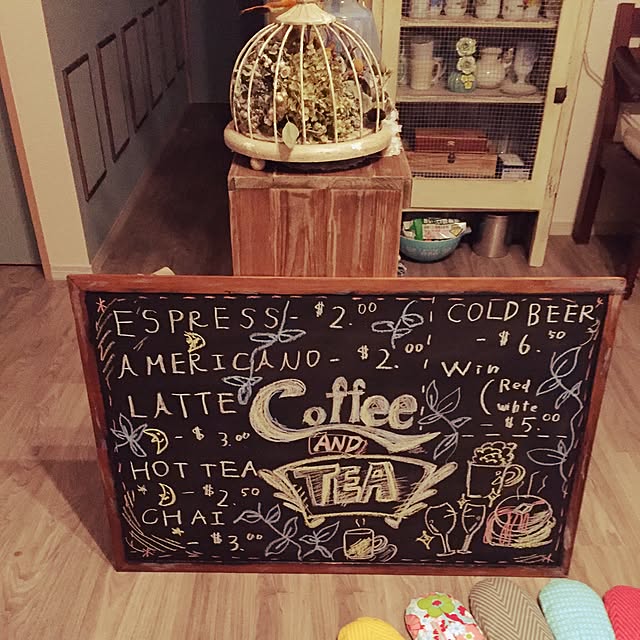 ESPRESS - $2.00
AMERICANO - $2.00
LATTE
- $3.00
HOT TEA
- $2.50
CHAI
- $3.00
Coffee
AND
TEA
COLD BEER
- $6.50
Win
(Red
white
- $5.00